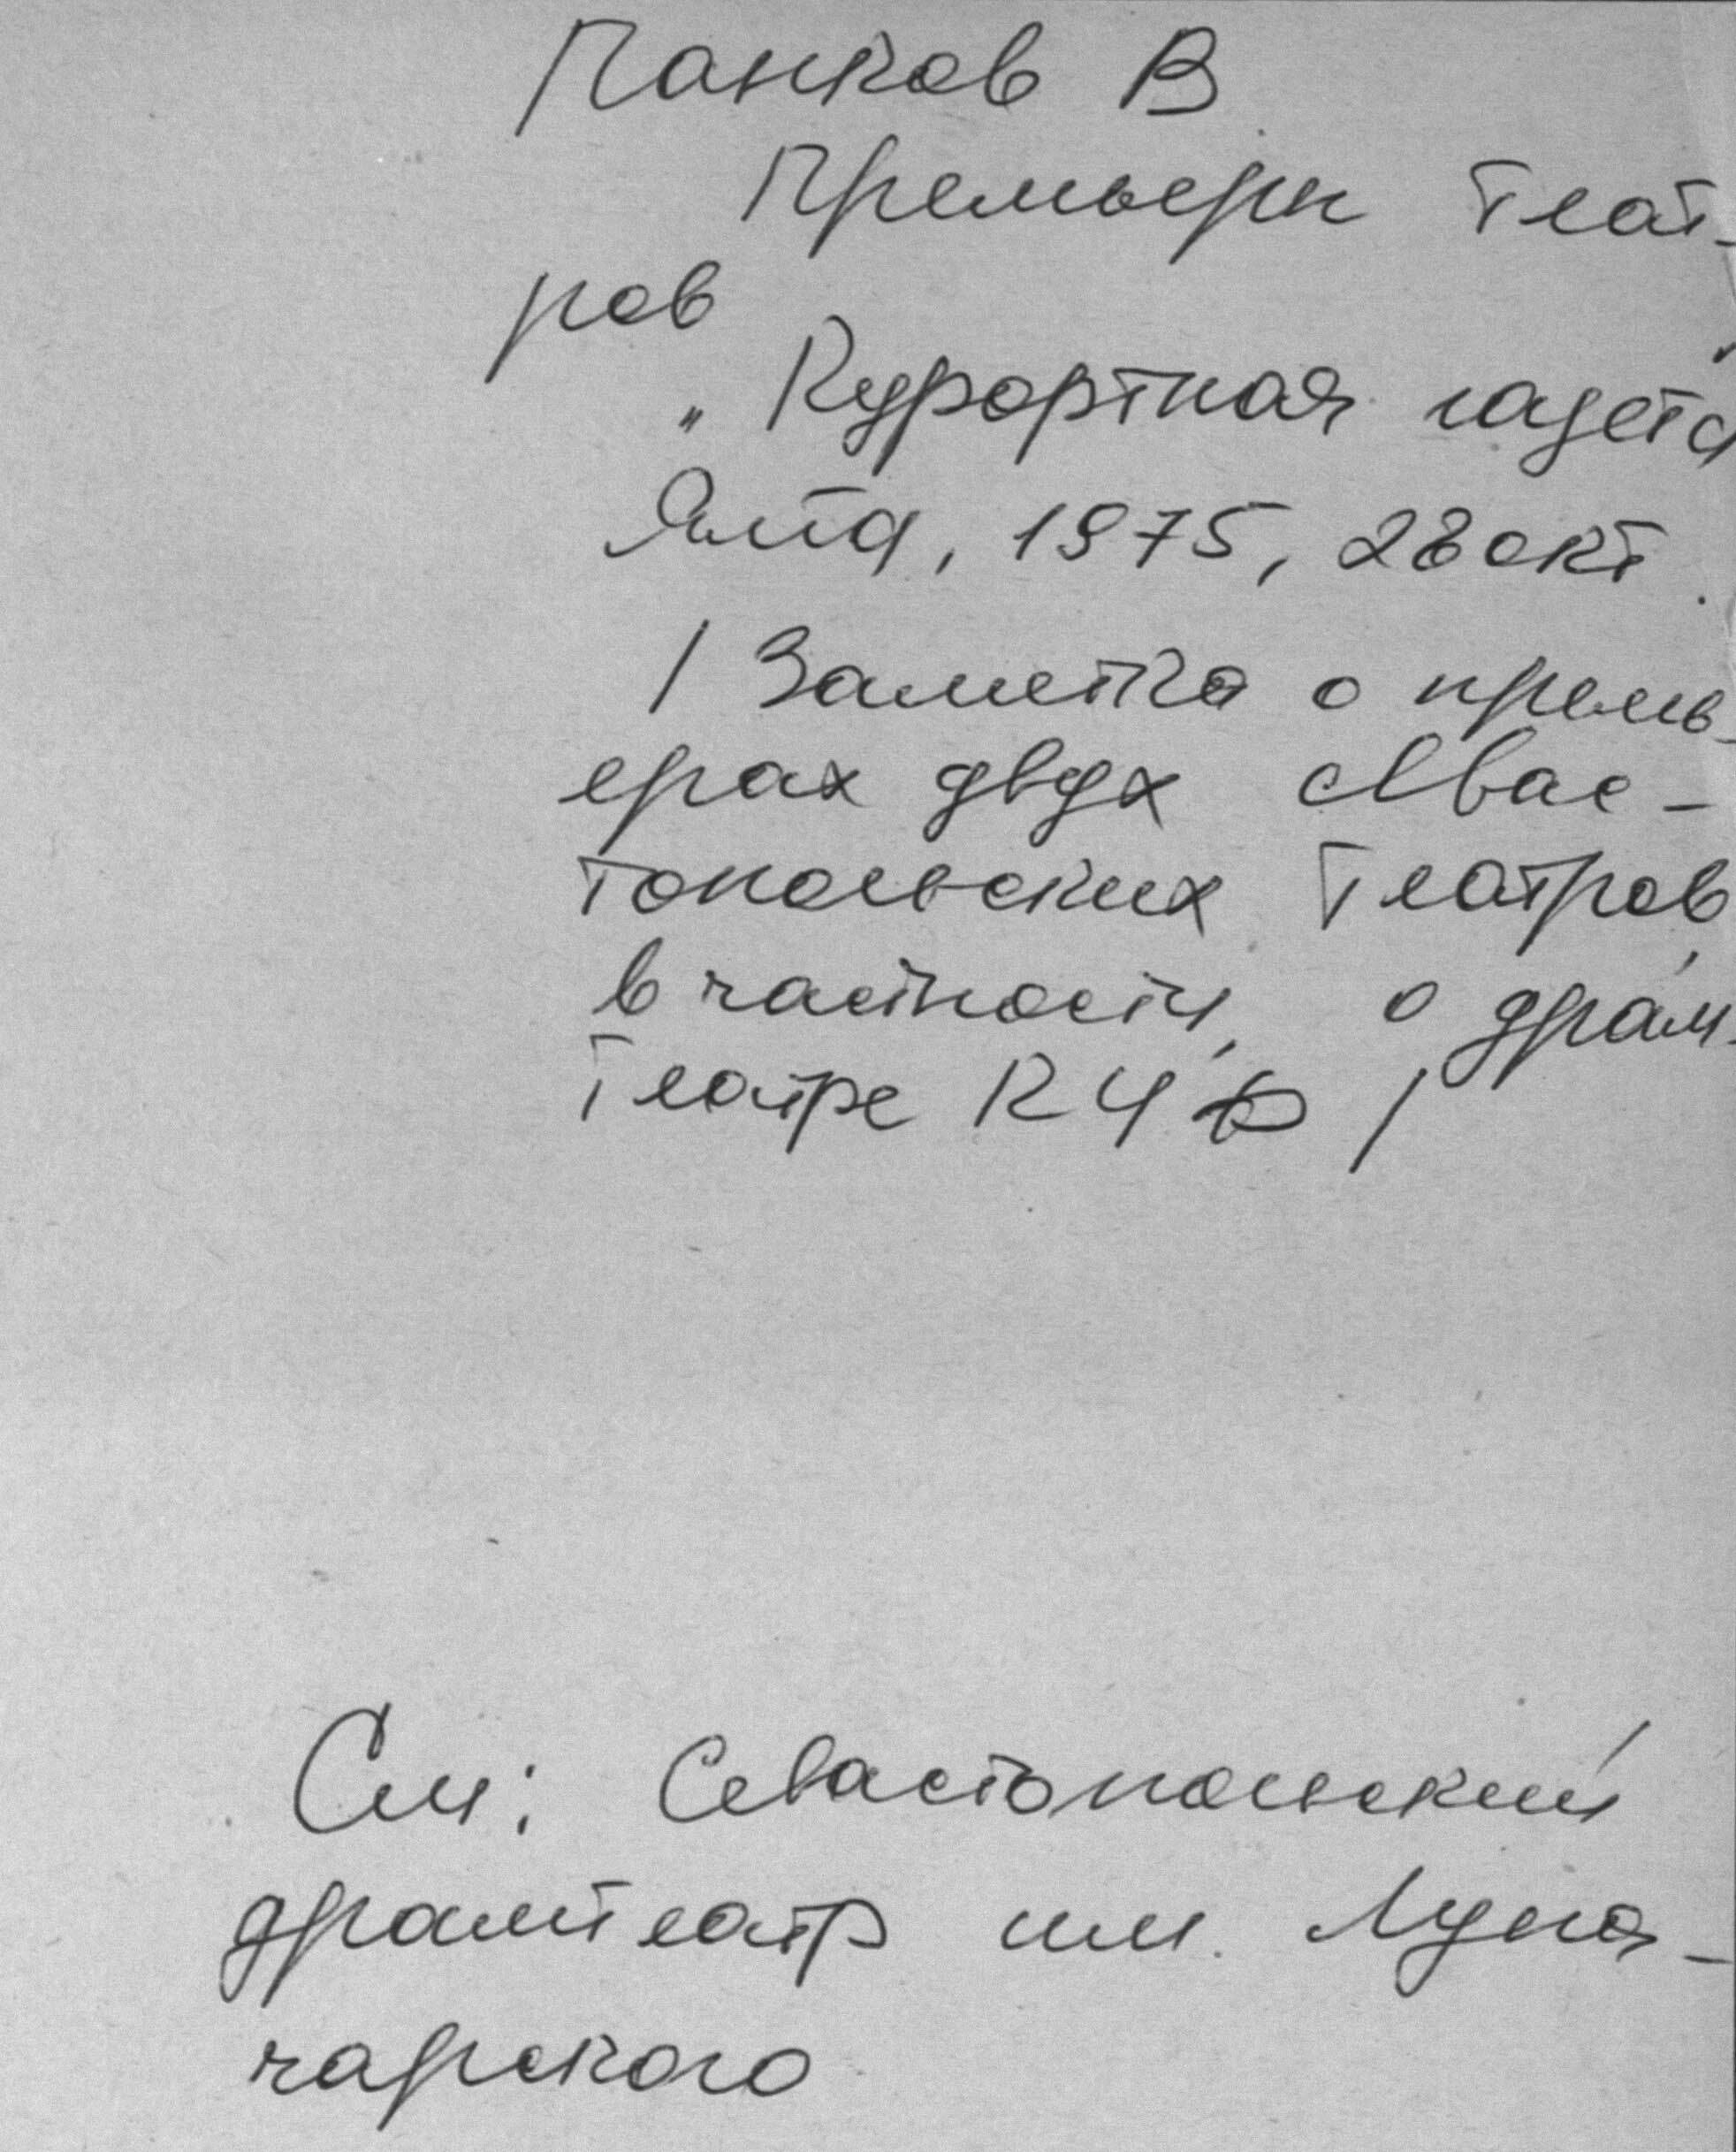 Панков В.
Премьеры теат-
ров
„Курортная газета
Ялта, 1975, 28 окт.
/ Заметка о премь-
ерах двух севас-
топольских театров,
в частности, о драм-
театре КЧФ /
См: Севастопольский
драмтеатр им. Луна-
чарского